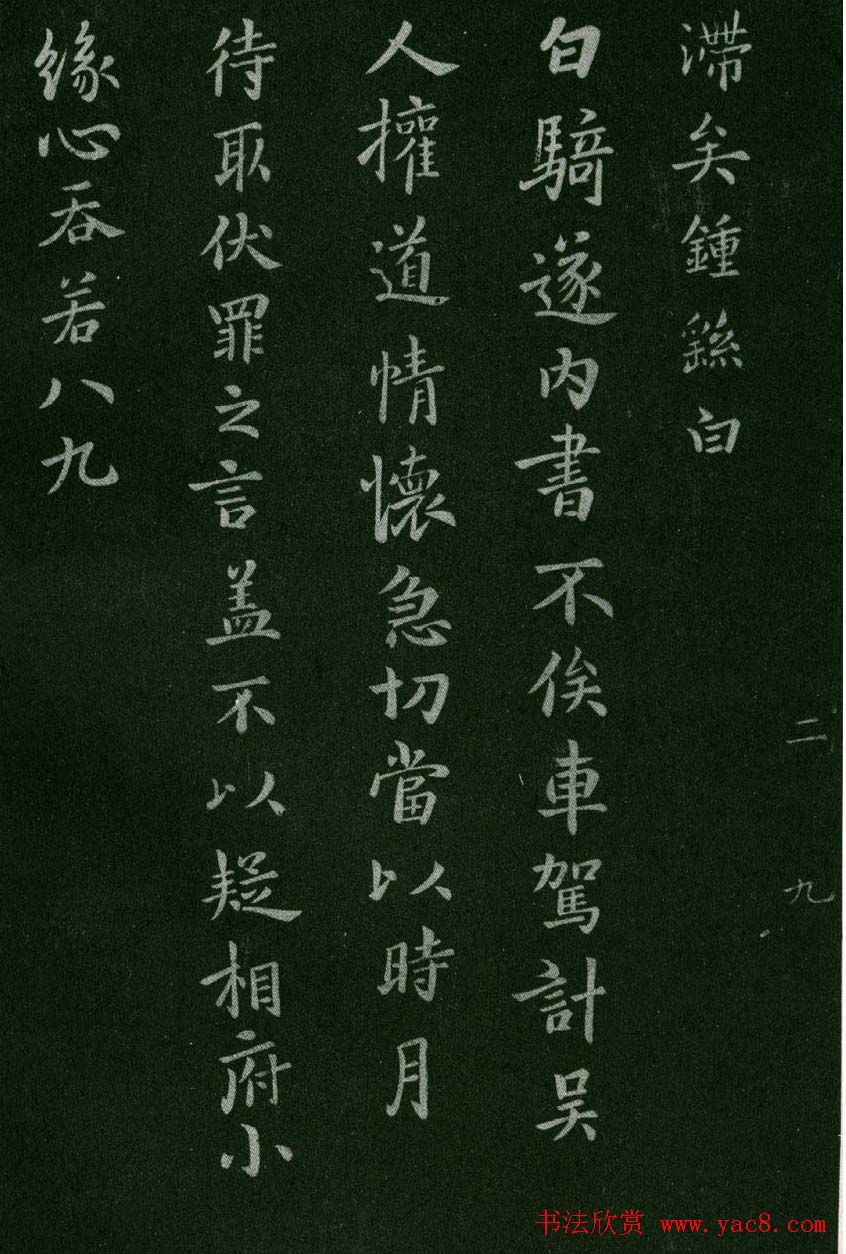 滯矣鍾繇白
白騎遂內書不俟車駕計吳
人權道情懷急切當以時月
待取伏罪之言盖不以疑相府小
緣心吞若八九
二九
书法欣赏 www.yac8.com